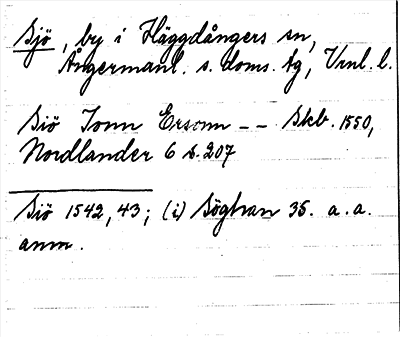 Sjö, by i Häggdångers sn,
Ångermanl. s. doms. tg, Vrnl. l.
Siö Jonn Ersonn -- Skb. 1550,
Nordlander 6 s. 207
Siö 1542, 43; (i) Söghan 35. a. a.
anm.